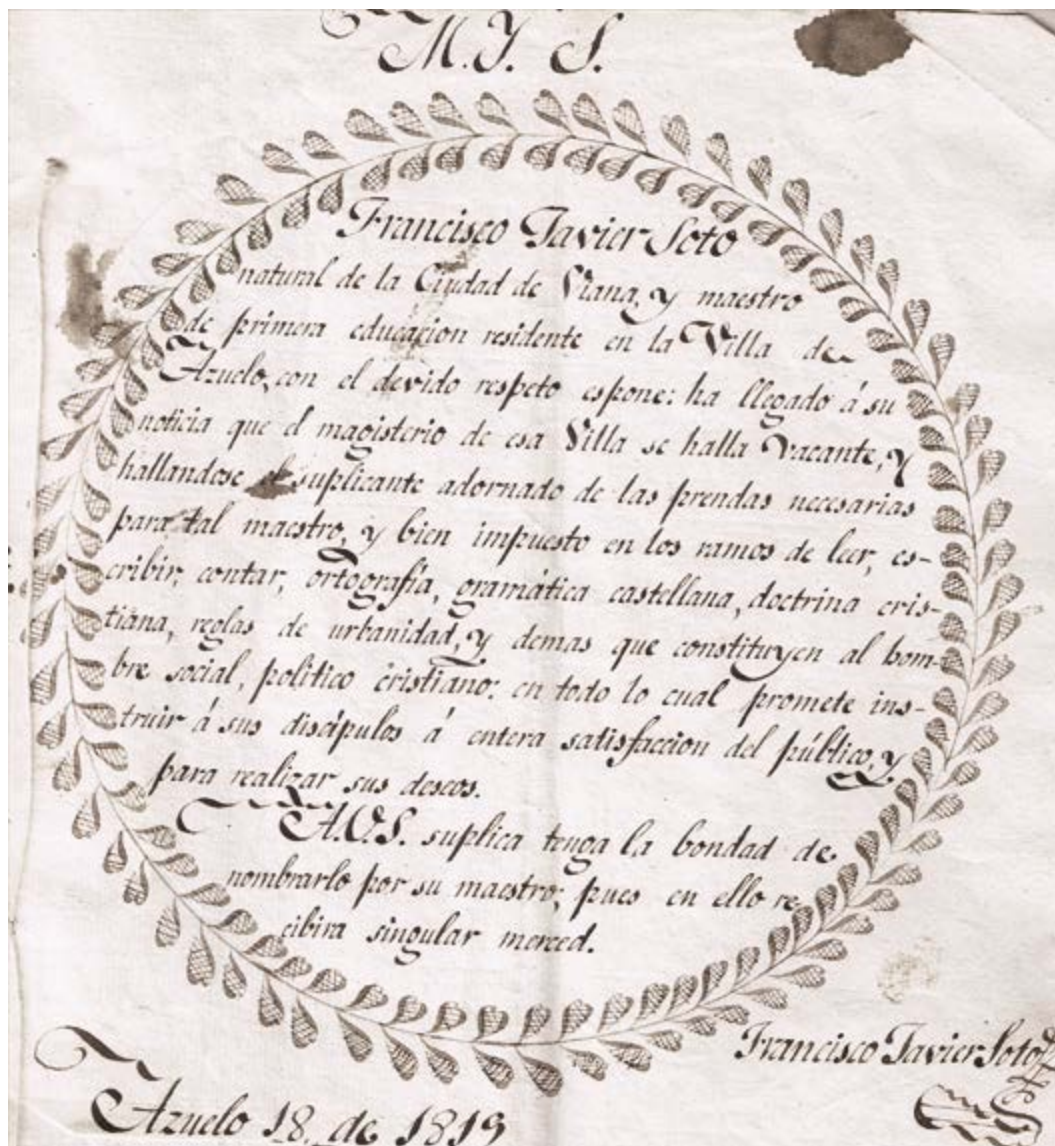 M.Y. S.
Francisco Javier Soto
natural de la Ciudad de Viana, y maestro
de primera educacion residente en la Villa de
Azuelo, con el devido respeto espone: ha llegado á su
noticia que el magisterio de esa Villa se halla vacante, y
hallandose el suplicante adornado de las prendas necesarias
para tal maestro, y bien impuesto en los ramos de leer, es-
cribir, contar, ortografía, gramática castellana, doctrina cris-
tiana, reglas de urbanidad, y demas que constituyen al hom-
bre social, politico cristiano: en todo lo cual promete ins-
truir á sus discípulos á entera satisfaccion del público, y
para realizar sus deseos.
A.V.S. suplica tenga la bondad de
nombrarlo por su maestro; pues en ello re
cibira singular merced.
Francisco Javier Soto
Azuelo 18 de 1819